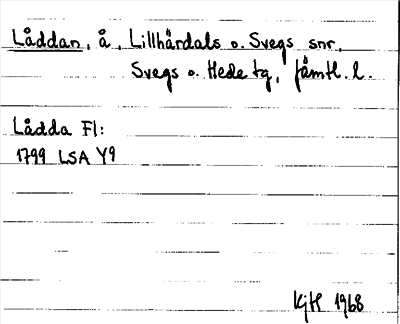 Låddan, å, Lillhärdals o. Svegs snr,
Svegs o. Hede tg, Jämtl. l.
Lådda Fl:
1799 LSA Y9
KjH 1968